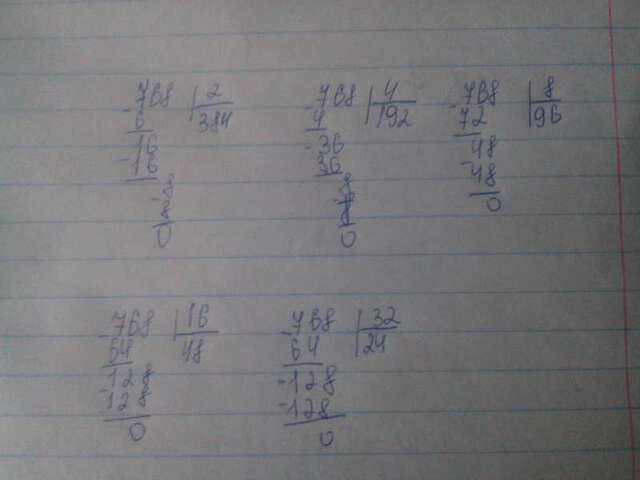 -768 | 2
6 | 384
-16
16
-8
8
0
-768 | 4
4 | 192
-36
36
-8
8
0
-768 | 8
72 | 96
-48
48
0
-768 | 16
64 | 48
-128
128
0
-768 | 32
64 | 24
-128
128
0